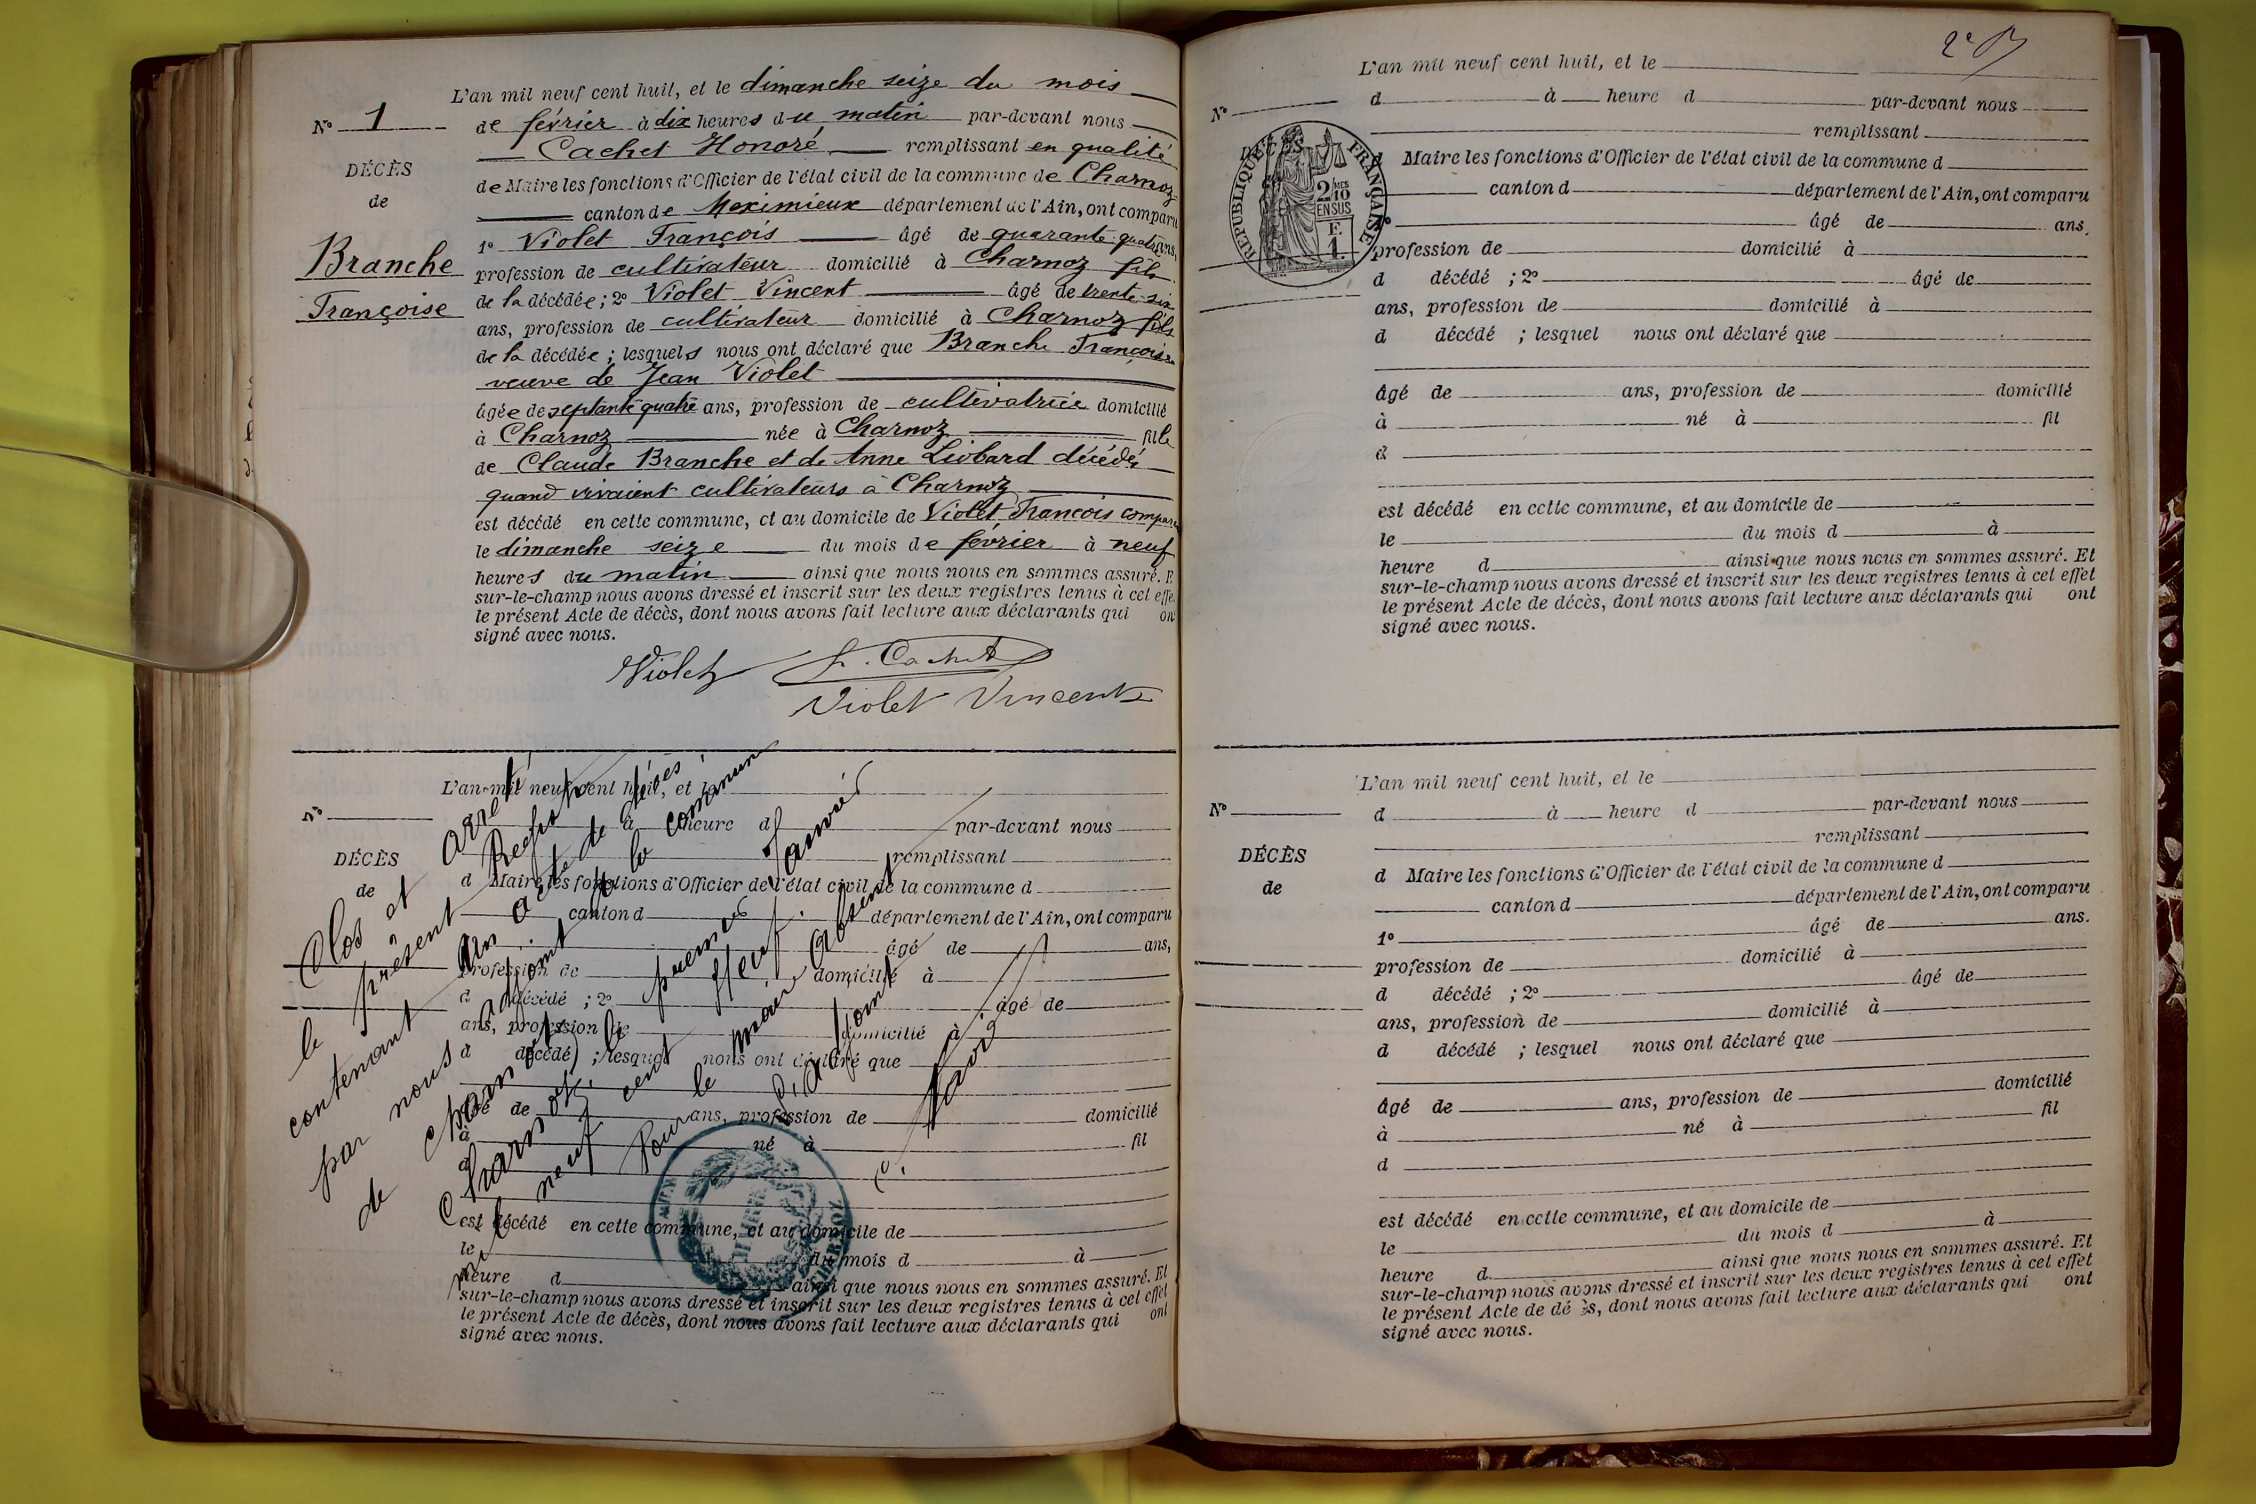 L'an mil neuf cent huit, et le dimanche seize du mois
N° 1 de février à dix heures du matin par-devant nous
Cachet Honoré remplissant en qualité
DÉCÈS
de Maire les fonctions d'Officier de l'état civil de la commune de Charnoz
de
canton de Meximieux département de l'Ain, ont comparu
1° Violet François âgé de quarante quatre ans,
Branche
profession de cultivateur domicilié à Charnoz fils
Françoise
de la décédée ; 2° Violet Vincent âgé de trente-six
ans, profession de cultivateur domicilié à Charnoz fils
de la décédée ; lesquels nous ont déclaré que Branche Françoise
veuve de Jean Violet
âgée de septante quatre ans, profession de cultivatrice domicilié
à Charnoz née à Charnoz fille
de Claude Branche et de Anne Liobard décédés
quand vivaient cultivateurs à Charnoz
est décédé en cette commune, et au domicile de Violet François compara
le dimanche seize du mois de février à neuf
heures du matin ainsi que nous nous en sommes assuré. E
sur-le-champ nous avons dressé et inscrit sur les deux registres tenus à cet effe
le présent Acte de décès, dont nous avons fait lecture aux déclarants qui on
signé avec nous.
Violet H. Cachet
Violet Vincent
L'an mil neuf cent huit, et le
N°
à heure d par-devant nous
remplissant
DÉCÈS
d Maire les fonctions d'Officier de l'état civil de la commune d
de
canton d département de l'Ain, ont comparu
âgé de ans,
profession de domicilié à
d décédé ; 2° âgé de
ans, profession de domicilié à
d décédé ; lesquel nous ont déclaré que
âgé de ans, profession de domicilié
à né à fil
d
est décédé en cette commune, et au domicile de
le du mois d à
heure d ainsi que nous nous en sommes assuré. Et
sur-le-champ nous avons dressé et inscrit sur les deux registres tenus à cet effet
le présent Acte de décès, dont nous avons fait lecture aux déclarants qui ont
signé avec nous.
Clos et arrêté
le présent Registre
contenant un acte de décès,
par nous adjoint de la commune
de Charnoz le premier Janvier
mil neuf cent neuf.
Pour le maire absent
L'adjoint
2e
L'an mil neuf cent huit, et le
N°
d à heure d par-devant nous
remplissant
DÉCÈS
RÉPUBLIQUE FRANÇAISE
2/10 MES
EN SUS
E.
1.
d Maire les fonctions d'Officier de l'état civil de la commune d
canton d département de l'Ain, ont comparu
âgé de ans,
profession de domicilié à
d décédé ; 2° âgé de
ans, profession de domicilié à
d décédé ; lesquel nous ont déclaré que
âgé de ans, profession de domicilié
à né à fil
d
est décédé en cette commune, et au domicile de
le du mois d à
heure d ainsi que nous nous en sommes assuré. Et
sur-le-champ nous avons dressé et inscrit sur les deux registres tenus à cet effet
le présent Acte de décès, dont nous avons fait lecture aux déclarants qui ont
signé avec nous.
L'an mil neuf cent huit, et le
N°
d à heure d par-devant nous
remplissant
DÉCÈS
d Maire les fonctions d'Officier de l'état civil de la commune d
de
canton d département de l'Ain, ont comparu
1° âgé de ans.
profession de domicilié à
d décédé ; 2° âgé de
ans, profession de domicilié à
d décédé ; lesquel nous ont déclaré que
âgé de ans, profession de domicilié
à né à fil
d
est décédé en cette commune, et au domicile de
le du mois d à
heure d ainsi que nous nous en sommes assuré. Et
sur-le-champ nous avons dressé et inscrit sur les deux registres tenus à cet effet
le présent Acte de dé ès, dont nous avons fait lecture aux déclarants qui ont
signé avec nous.